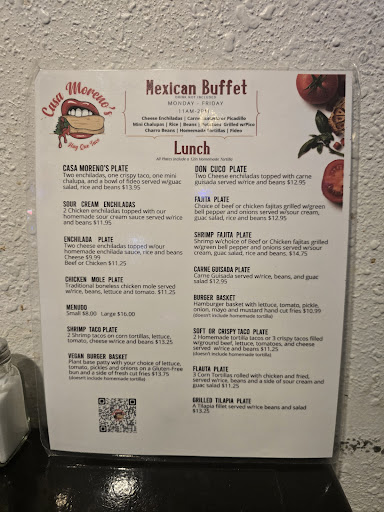 Casa Moreno's
Mexican Buffet
DRINK NOT INCLUDED
MONDAY - FRIDAY
11AM-2PM
Cheese Enchiladas | Carne Picadillo
Mini Chalupas | Rice | Beans | Grilled w/Pico
Charro Beans | Homemade Tortillas | Fideo
Lunch
All Plates include a Homemade Tortilla
CASA MORENO'S PLATE
Two enchiladas, one crispy taco, one mini
chalupa, and a bowl of fideo served w/guac
salad, rice and beans $13.95
SOUR CREAM ENCHILADAS
2 Chicken enchiladas topped with our
homemade sour cream sauce served w/rice
and beans $11.95
ENCHILADA PLATE
Two cheese enchiladas topped w/our
homemade enchilada sauce, rice and beans
Cheese $9.99
Beef or Chicken $11.25
CHICKEN MOLE PLATE
Traditional boneless chicken mole served
w/rice, beans, lettuce and tomato. $11.25
MENUDO
Small $8.00 Large $16.00
SHRIMP TACO PLATE
2 Shrimp tacos on corn tortillas, lettuce,
tomato, cheese w/rice and beans $13.25
VEGAN BURGER BASKET
Plant base patty with your choice of lettuce,
tomato, pickles and onions on a Gluten-Free
bun and a side of fresh cut fries $13.75
(doesn't include homemade tortilla)
DON CUCO PLATE
Two Cheese enchiladas topped with carne
guisada served w/rice and beans $12.95
FAJITA PLATE
Choice of beef or chicken fajitas grilled w/green
bell pepper and onions served w/sour cream,
guac salad, rice and beans $12.95
SHRIMP FAJITA PLATE
Shrimp w/choice of Beef or Chicken fajitas grilled
w/green bell pepper and onions served w/sour
cream, guac salad, rice and beans, $14.75
CARNE GUISADA PLATE
Carne Guisada served w/rice, beans, and guac
salad $12.95
BURGER BASKET
Hamburger basket with lettuce, tomato, pickle,
onion, mayo and mustard hand cut fries $10.99
(doesn't include homemade tortilla)
SOFT OR CRISPY TACO PLATE
2 Homemade tortilla tacos or 3 crispy tacos filled
w/ground beef, lettuce, tomatoes, and cheese
served w/rice and beans $11.25
(doesn't include homemade tortilla)
FLAUTA PLATE
3 Corn Tortillas rolled with chicken and fried,
served w/rice, beans and a side of sour cream and
guac salad $11.25
GRILLED TILAPIA PLATE
A Tilapia fillet served w/rice beans and salad
$13.25